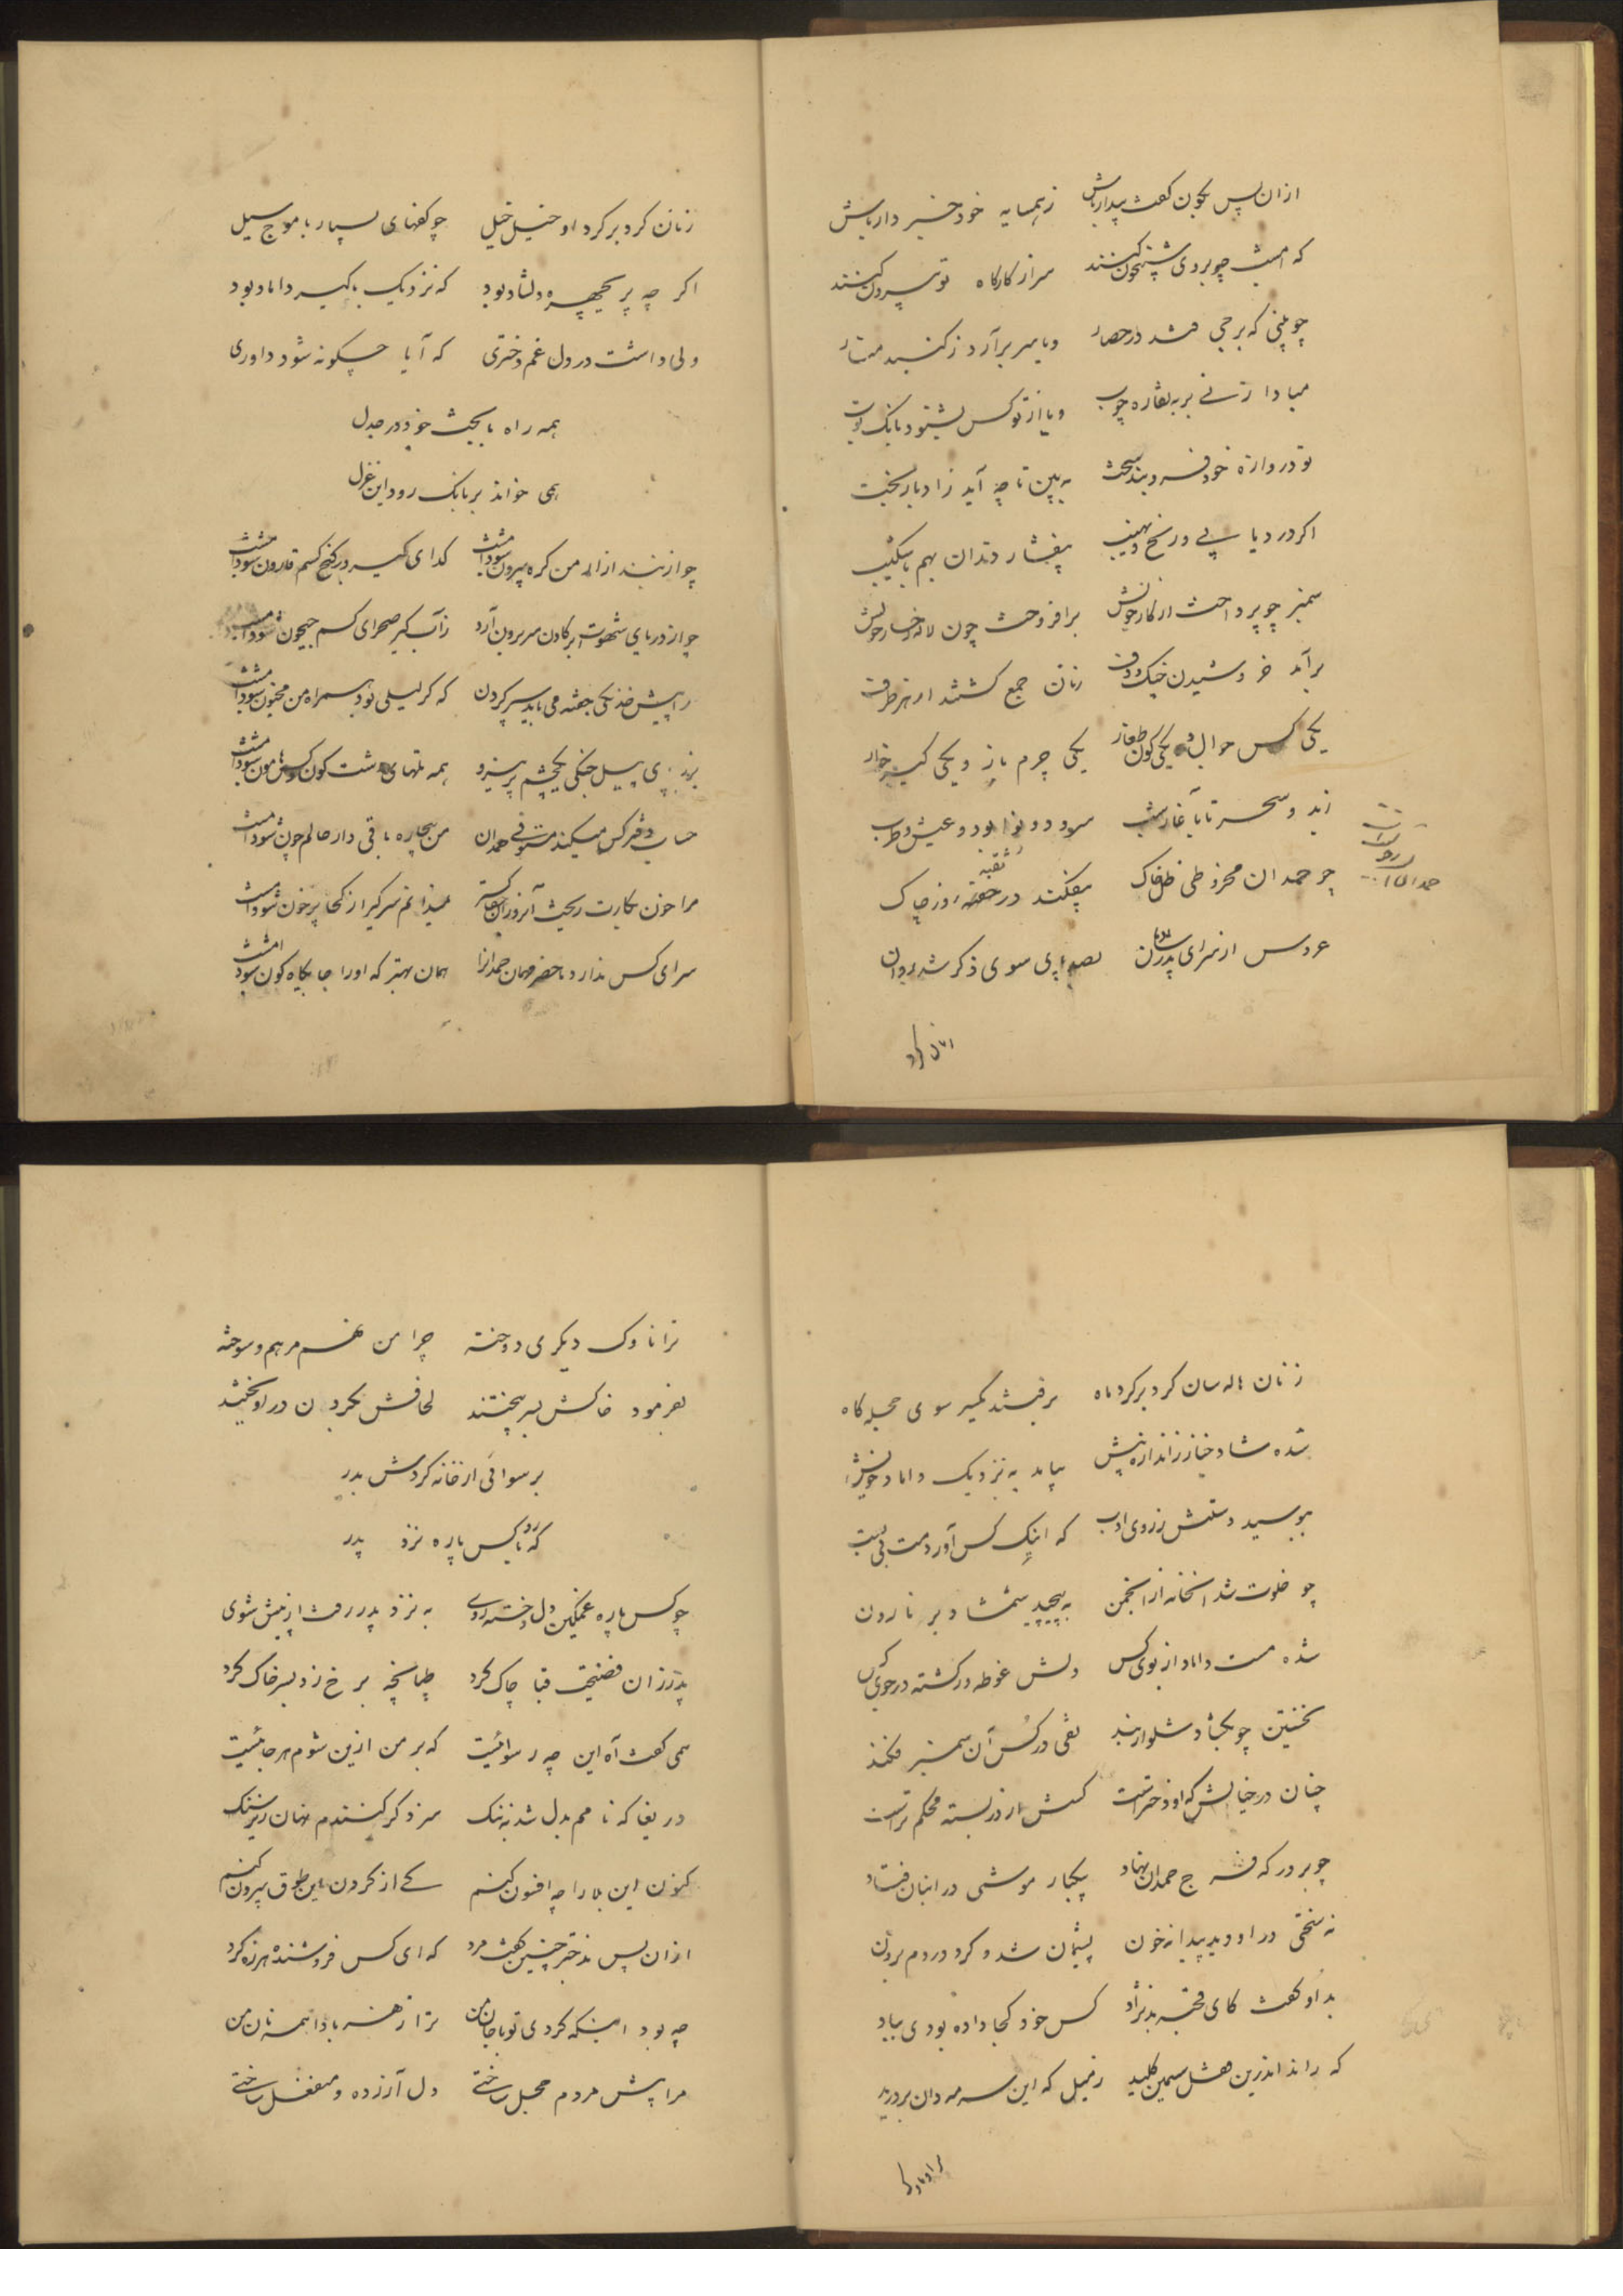 ازان پس بکون گفت بیدار باش زهمسایه خود خبردار باش
که امشب چو بر وی شبیخون کنند سر از کارگاه تو بیرون کنند
چو بینی که برجی شد در حصار و یا سر برآرد ز گنبد منار
مبادا زنی بر به نقاره چوب و یا از تو کس بشنود بانک توب
تو دروازه خود فروبند سخت به بین تا چه آید ز ادبار بخت
اگر در دیا پی و رنج و نهیب بیفشار دندان بهم با شکیب
سمنبر چو پرداخت از کار خویش برافروخت چون لاله رخسار خویش
برآمد خروشیدن چنک و دف زنان جمع گشتند از هر طرف
یکی کس جوال و یکی کون طغار یکی چرم باز و یکی کیر خوار
سحر تا باغاز شب سرود و نوا بود و عیش و طرب
چو حمدان مخروطی ظل خاک بیفکند در حقه روز چاک
ثقبه
عروس از سرای پدر ناکهان بصد سوی ذکر شد روان
زنان کرد
زنان کرد بر کرد او خیل خیل چو کفهای بسیار با موج سیل
اکر چه پریچهره دلشاد بود که نزدیک با کیر داماد بود
ولی داشت در دل غم دختری که آیا چگونه شود داوری
همه راه با بخت خود در جدل
همی خواند بر بانک رود این غزل
چو از بند ازار من کره بیرون شود امشب کدای کیر در کنج کسم قارون شود امشب
چو از دریای شهوت ابر کادن سر برون آرد ز آب کیر صحرای کسم جیحون شود امشب
ز پیش خدنکی جفته می باید سپر کردن که کر لیلی بود همراه من مجنون شود امشب
بزیر پی پیل جنکی یکچشم پر نیرو همه تلهای دشت کون و کس هامون شود امشب
حساب دفتر کس میکند مستوفی حمدان من بیچاره باقی دار حالم چون شود امشب
مرا خون بکارت ریخت آنروزان نمیدانم سر کیر از کجا پر خون شود امشب
سرای کس ندارد ماحضر مهمان حمدانرا همان بهتر که او را جایکاه کون شود امشب
زنان هاله سان کرد بر کرد ماه برفتند یکسر سوی حجله کاه
شده شاد خیاز ز اندازه بیش بیامد به نزدیک داماد خویش
ببوسید دستش ز روی ادب که اینک کس آوردمت بی سبب
چو خلوت شد آنخانه از انجمن به پیچید شمشاد بر نارون
شده مست داماد از بوی کس دلش غوطه ور کشته در جوی کس
نخستین چو بکشاد شلوار بند تفی در کس آن سمنبر فکند
چنان در خیالش که او دختر است کسش از در بسته محکم تر است
چو بر درکه فرج حمدان نهاد بیکبار موشی در انبان فتاد
نه سختی در او دید پیدا نه خون پشیمان شد و کرد در دم برون
بدو گفت کای قحبه بدنژاد کس خود کجا داده بودی بباد
که راند اندرین هشل سیمین کلید ز میل که این سرمه دان بردرید
ترا ناوک
ترا ناوک دیکری دوخته چرا من نهم مرهم سوخته
بفرمود خاکش بسر بیختند لحافش بکردن در آویختند
برسوائی از خانه کردش بدر
که رو با کس پاره نزد پدر
چو کس پاره غمکین دل و خسته روی به نزد پدر رفت از پیش شوی
پدر زان فضیحت قبا چاک کرد طپانچه برخ زد بسر خاک کرد
همی گفت آه این چه رسوائیست که بر من ازین شوم هر جائیست
دریغا که نامم بدل شد به ننک سزد کر کنندم نهان زیر سنک
کنون این بلا را چه افسون کنم کی از کردن این طوق بیرون کنم
ازان پس بدختر چنین گفت مرد که ای کس فروشنده هرزه کرد
چه بود اینکه کردی تو با جان من ترا زهر بادا همه نان من
مرا پیش مردم خجل ساختی دل آزرده و منفعل ساختی